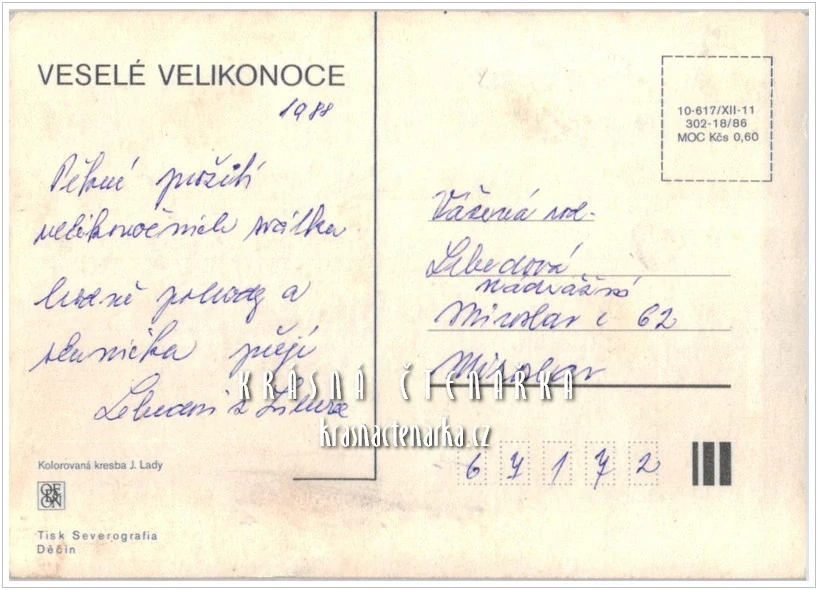 VESELÉ VELIKONOCE
1988
Pěkné prožití
velikonočních svátků
hodně pohody a
sluníčka přejí
Lebedovi z
Kolorovaná kresba J. Lady
ODEON
Tisk Severografia
Děčín
10-617/XII-11
302-18/86
MOC Kčs 0,60
Vážená rod.
Lebedová
nádražní
Miroslav č 62
Miroslav
KRÁSNÁ ČTENÁŘKA
krasnactenarka.cz
67172